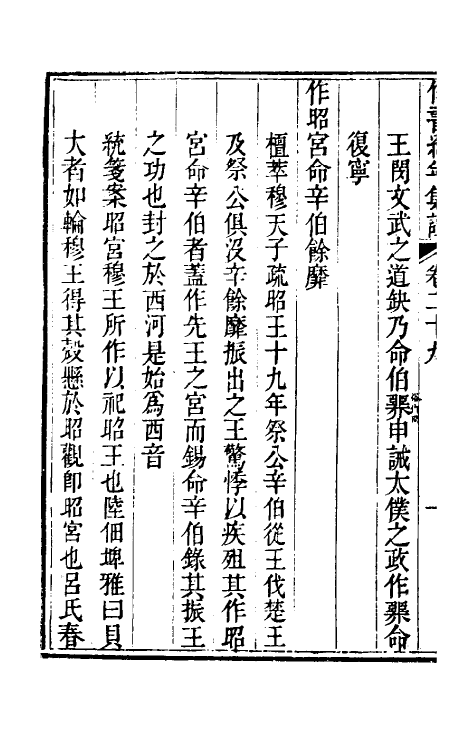 竹書紀年集證 卷二十九 一
王閔文武之道缺乃命伯冏申誡太僕之政作冏命
復寧
作昭宮命辛伯餘靡
檀萃穆天子疏昭王十九年祭公辛伯從王伐楚王
及祭公俱沒辛餘靡振出之王驚悸以疾殂其作昭
宮命辛伯者蓋作先王之宮而錫命辛伯錄其振王
之功也封之於西河是始為西音
統箋案昭宮穆王所作以祀昭王也陸佃埤雅曰貝
大者如輪穆王得其殼懸於昭觀卽昭宮也呂氏春